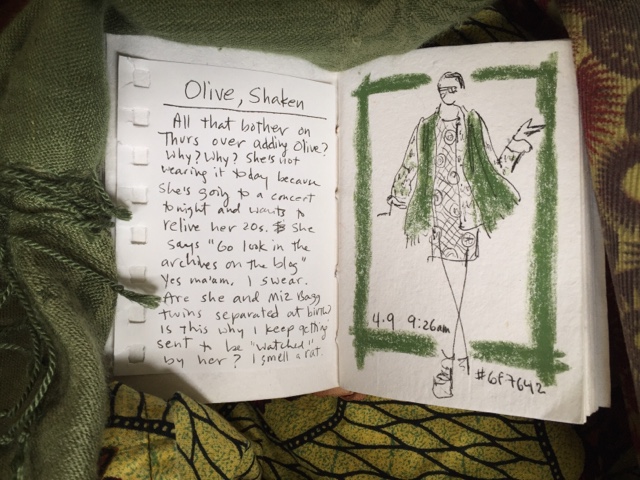 Olive, Shaken
All that bother on
Thurs over adding Olive?
Why? Why? She's not
wearing it today because
she's going to a concert
tonight and wants to
relive her 20s. She
says "Go look in the
archives on the blog"
Yes ma'am, I swear.
Are she and Miz Bagg
twins separated at birth?
Is this why I keep getting
sent to be "watched"
by her? I smell a rat.
4.9 9:26am
#6F7642